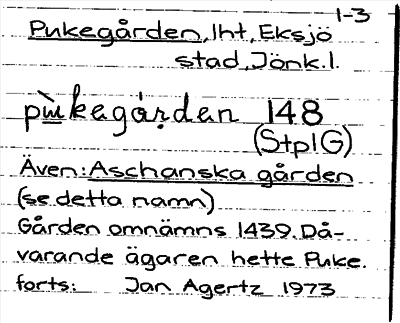 1-3
Pukegården, lht, Eksjö
stad, Jönk.l.
pùkegårḍen 148
(StplG)
Även: Aschanska gården
(se detta namn)
Gården omnämns 1439. Då-
varande ägaren hette Puke.
forts: Jan Agertz 1973